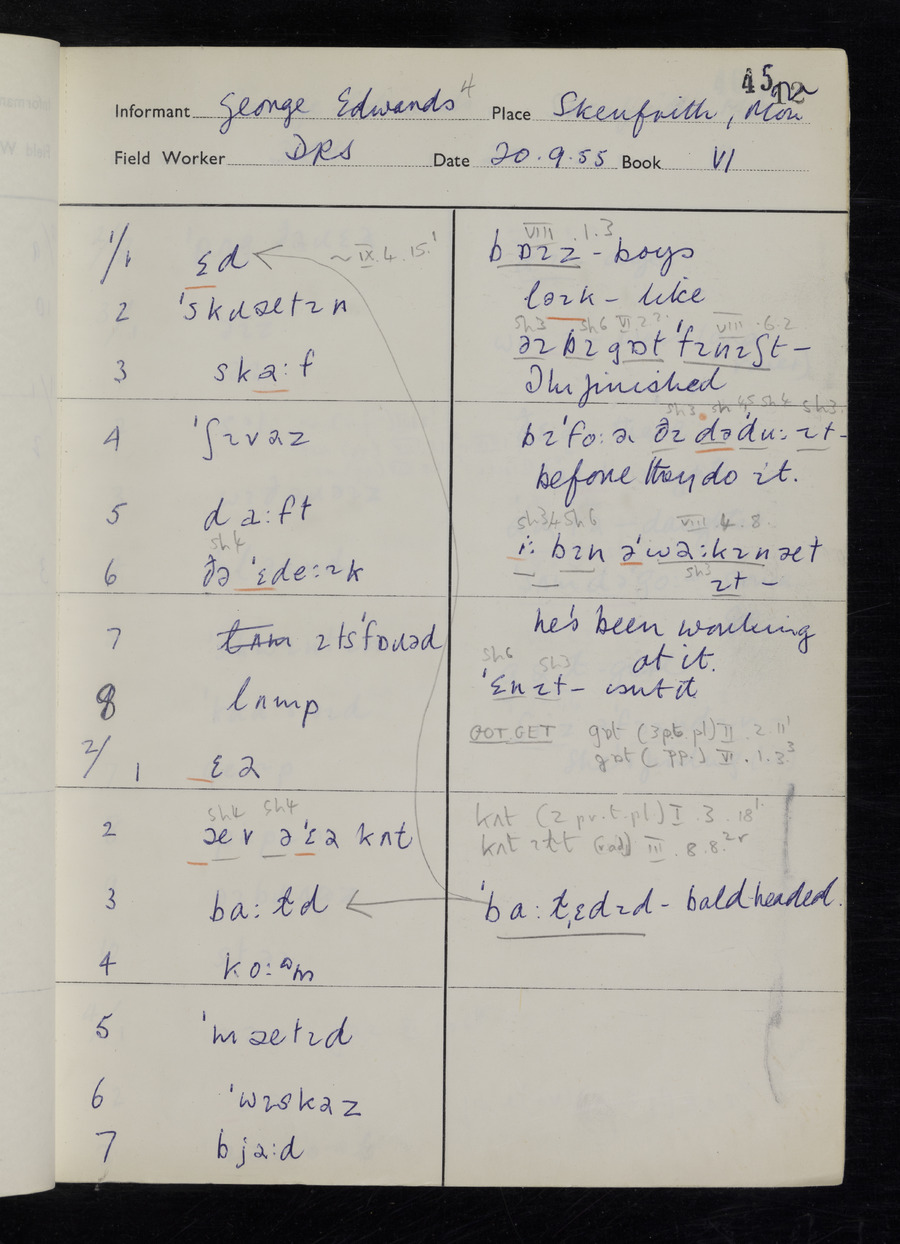 45
Informant George Edwards 4 Place Skenfrith, Mon
Field Worker DRS Date 20.9.55 Book VI
1/1 ɛd ~ IX.4.15¹
2 ˈskɹætɪn
3 skəːf
4 ˈʃɪvəz
5 dəːft
sh4
6 ðə ˈɛdeːɪk
7 ɪtsˈfɒɹəd
8 lʌmp
2/1 ɛə
sh4 sh4
2 æv əˈɛə kʌt
3 baːɫd
4 koːᵊm
5 ˈmætɪd
6 ˈwɪskəz
7 bjəːd
VIII.1.3
bɒɪz - boys
ləɪk - like
sh3 sh6 VI.2 VIII.6.2
əɪ bɪ gɒt ˈfɪnɪʃt -
finished
sh3 sh4,5 sh4 sh3
bɪˈfoːə ðɪ dəˈduːɪt -
before they do it.
sh34 sh6 VIII.4.8.
iː bɪn əˈwəːkɪn æt
sh3
ɪt -
he's been working
at it.
sh6 sh3
ˈɛnɪt - isn't it
GOT GET gɒt (3 pt. pl) II.2.11¹
gɒt (pp.) VI.1.3³
kʌt (2 pr.t.pl) I.3.18¹
kʌt ɪt III.8.8.
ˈbaːɫˌɛdɪd - bald-headed.